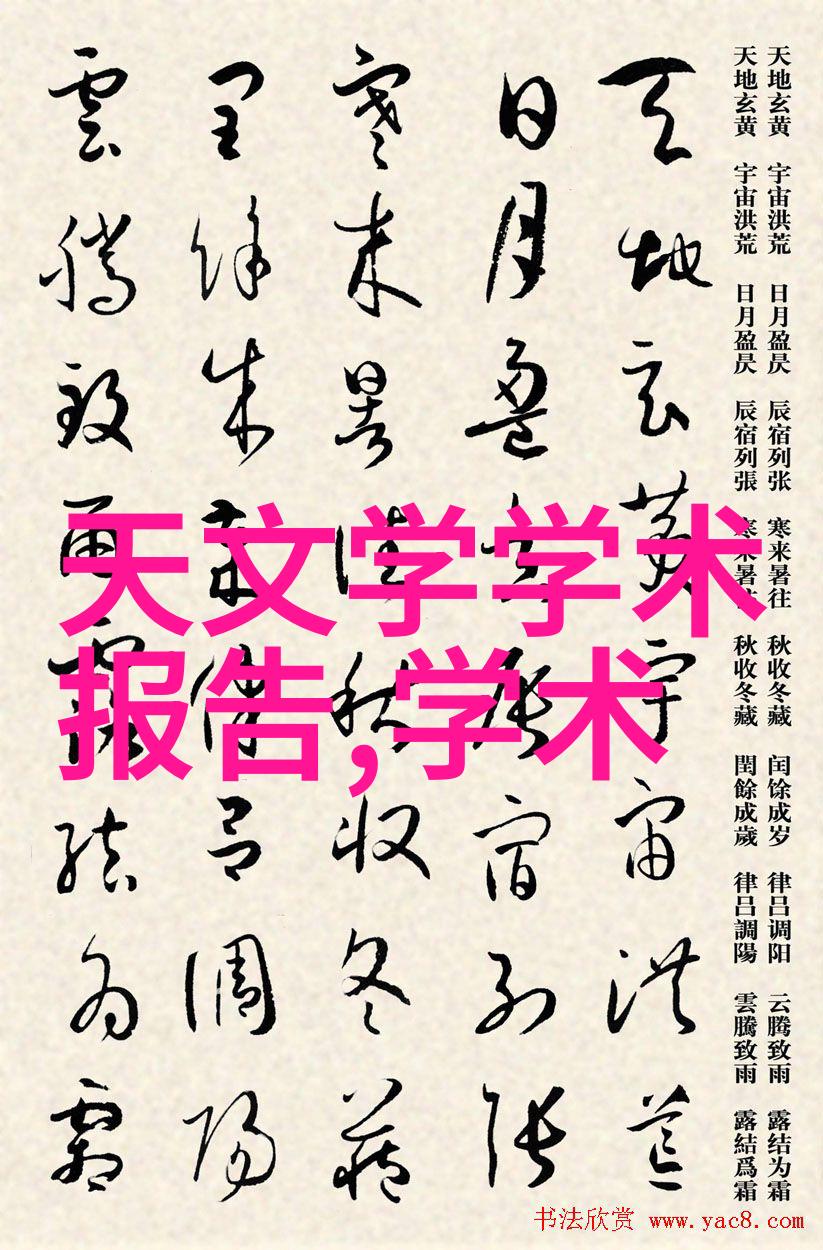 天地玄黄 宇宙洪荒 日月盈昃 辰宿列张 寒来暑往 秋收冬藏 闰馀成岁 律吕调阳 云腾致雨 露结为霜
天地玄黄 宇宙洪荒 日月盈昃 辰宿列張 寒来暑往 秋收冬藏 閏餘成歲 律吕調陽 雲騰致雨 露結爲霜
天地玄黄宇宙洪荒
日月盈昃辰宿列張
寒来暑往秋收冬藏
閏餘成歲律吕調陽
雲騰致雨露結為霜
天文学学术
报告,学术
书法欣赏 www.yac8.com